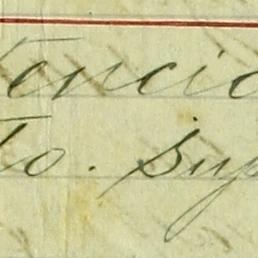 tencio
to. sup